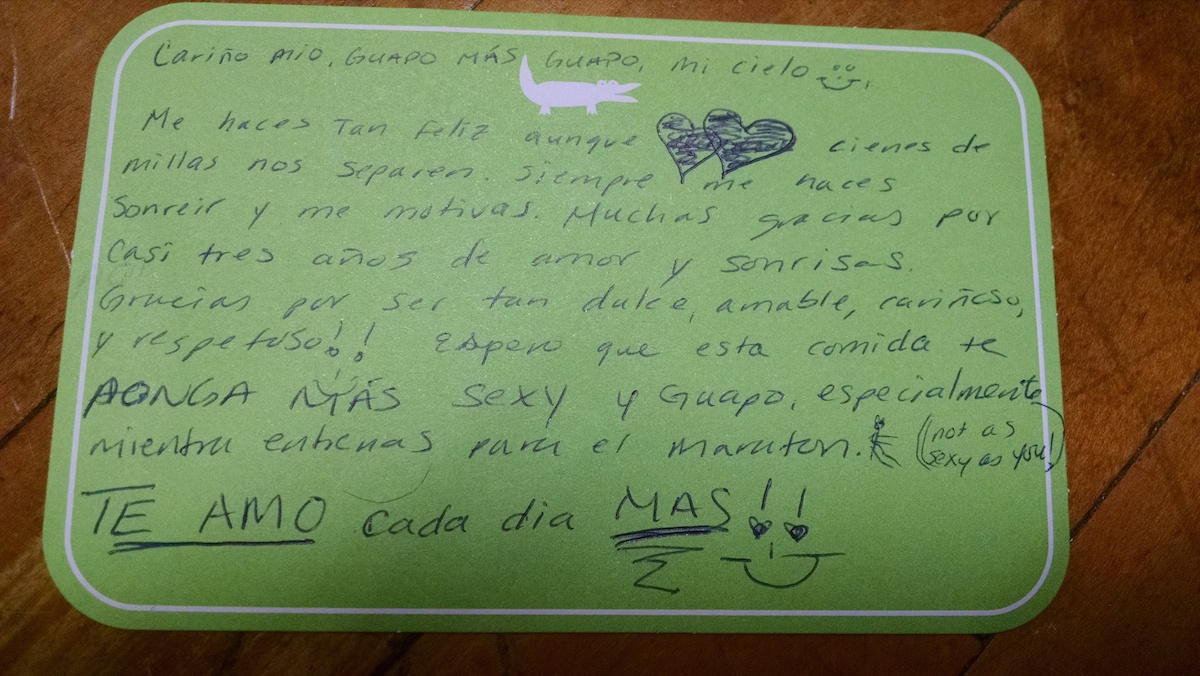 Cariño mio, GUAPO MÁS GUAPO, mi cielo
Me haces Tan feliz aunque cienes de
millas nos separen. Siempre me haces
Sonreir y me motivas. Muchas gracias por
Casi tres años de amor y sonrisas.
Gracias por ser tan dulce, amable, cariñoso,
y respetuso!! Espero que esta comida te
PONGA MÁS Sexy y Guapo, especialmente
mientra entrenas para el maraton. (not as
sexy as you!)
TE AMO cada dia MAS!!